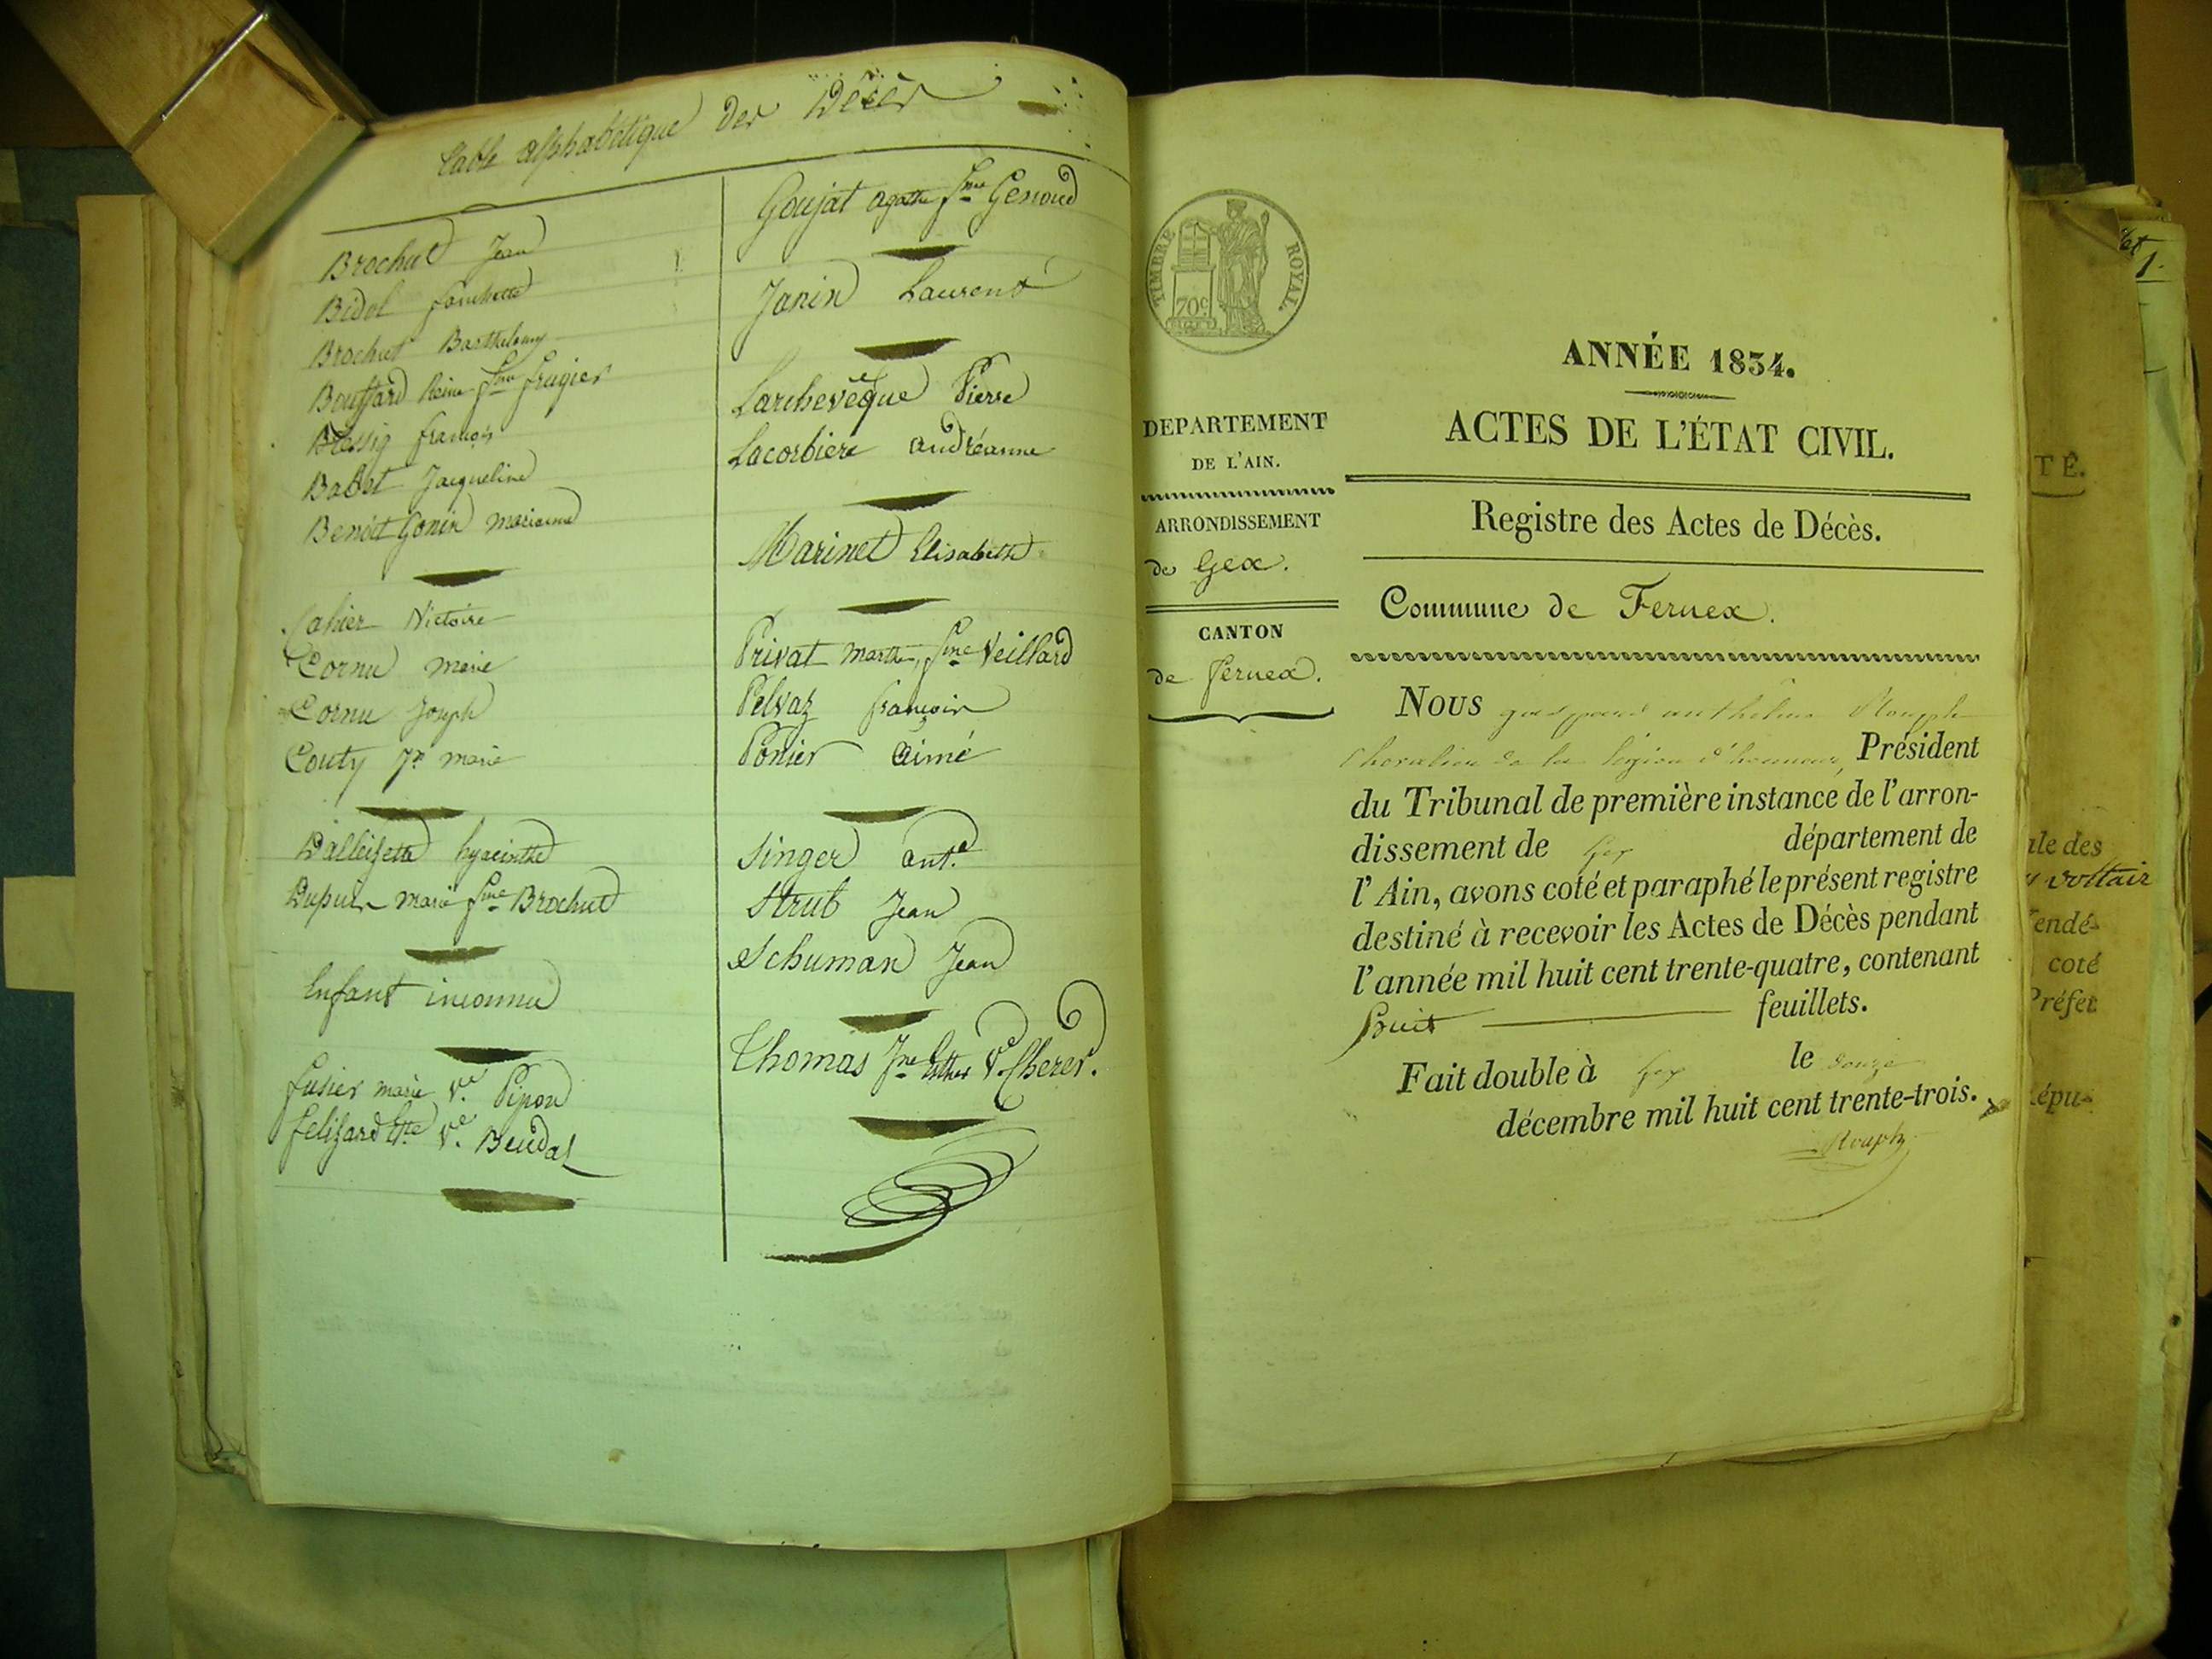 Table alphabétique des Décès
Brochut Jean
Bidal fanchette
Brochut Barthelemy
Bouffard Reine fme frugier
Blessig françois
Babet Jacqueline
Benoit Gonin marianne
Cahier Victoire
Cornu marie
Cornu Joseph
Couty Jn marie
Dalleizette hyacinthe
Dupuis marie fme Brochut
Enfant inconnu
fusier marie Ve Pipon
felizard Ve Beudal
Goujat agathe fme Genoud
Janin Laurent
Larchevêque Pierre
Lacorbiere andréanne
Marinet Elisabeth
Privat marthe, fme Veillard
Pelvaz françois
Ponier aimé
Singer ant.e
Strub Jean
Schuman Jean
Thomas Jne Esther Ve Cherer.
TIMBRE ROYAL.
70c.
ANNÉE 1834.
ACTES DE L'ÉTAT CIVIL.
Registre des Actes de Décès.
Commune de Fernex.
DEPARTEMENT
DE L'AIN.
ARRONDISSEMENT
de Gex.
CANTON
de fernex.
Nous gaspard anthelme Rouph
Chevalier de la légion d'honneur, Président
du Tribunal de première instance de l'arron-
dissement de Gex département de
l'Ain, avons coté et paraphé le présent registre
destiné à recevoir les Actes de Décès pendant
l'année mil huit cent trente-quatre, contenant
huit feuillets.
Fait double à Gex le douze
décembre mil huit cent trente-trois.
Rouph
et
1.
TÉ.
ale des
voltair
endé-
coté
Préfet
Répu-